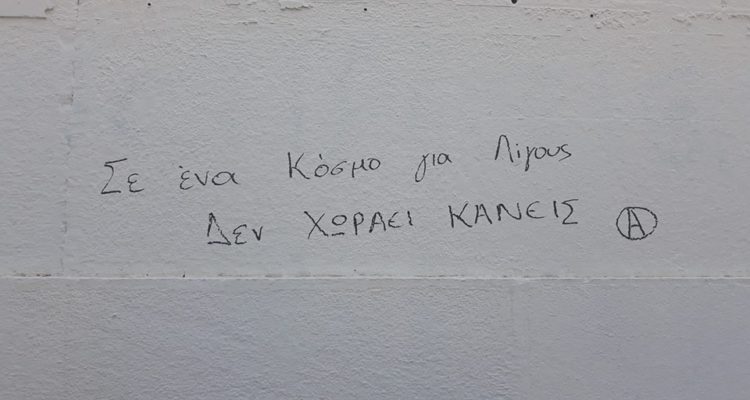 Σε ένα Κόσμο για Λίγους
Δεν ΧΩΡΑΕΙ ΚΑΝΕΙΣ Ⓐ